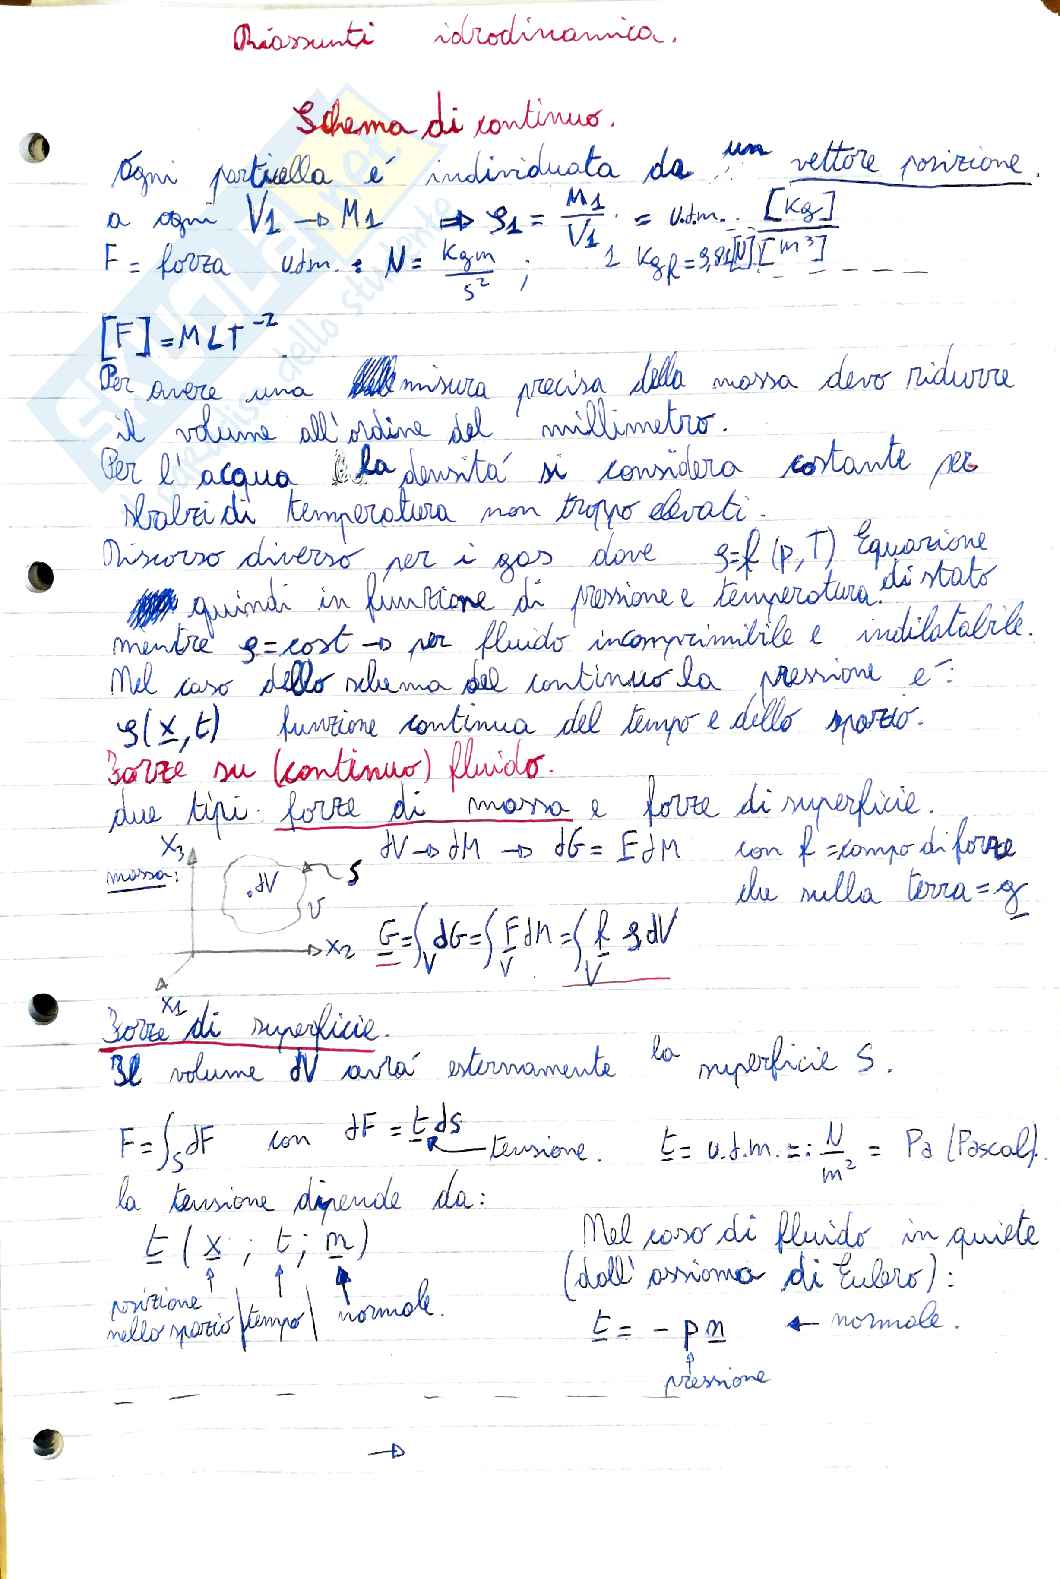 Riassunti idrodinamica.
Schema di continuo.
Ogni particella é individuata da un vettore posizione.
a ogni V1 → M1 ⇒ ρ1 = M1/V1 = u.d.m. [Kg]/[m³]
F = forza u.d.m. : N = Kg m/s² ; 1 Kgf = 9,81[N]
[F] = MLT⁻²
Per avere una misura precisa della massa devo ridurre
il volume all'ordine del millimetro.
Per l'acqua la densitá si considera costante per
sbalzi di temperatura non troppo elevati.
Discorso diverso per i gas dove ρ=f(p,T) Equazione di stato
quindi in funzione di pressione e temperatura.
mentre ρ=cost → per fluido incomprimibile e indilatabile.
Nel caso dello schema del continuo la pressione é:
ρ(x,t) funzione continua del tempo e dello spazio.
Forze su (continuo) fluido.
due tipi: forze di massa e forze di superficie.
X3 dV → dM → dG = F dM con f = campo di forze
massa: .dV S che sulla terra = g
V
X2 G = ∫V dG = ∫V F dM = ∫V f ρ dV
X1
Forze di superficie.
Il volume dV avrá esternamente la superficie S.
F = ∫S dF con dF = t dS tensione. t = u.d.m. =: N/m² = Pa (Pascal).
la tensione dipende da:
t (x ; t ; n) Nel caso di fluido in quiete
(dall'assioma di Eulero):
posizione nello spazio | tempo | normale.
t = - p n ← normale.
pressione